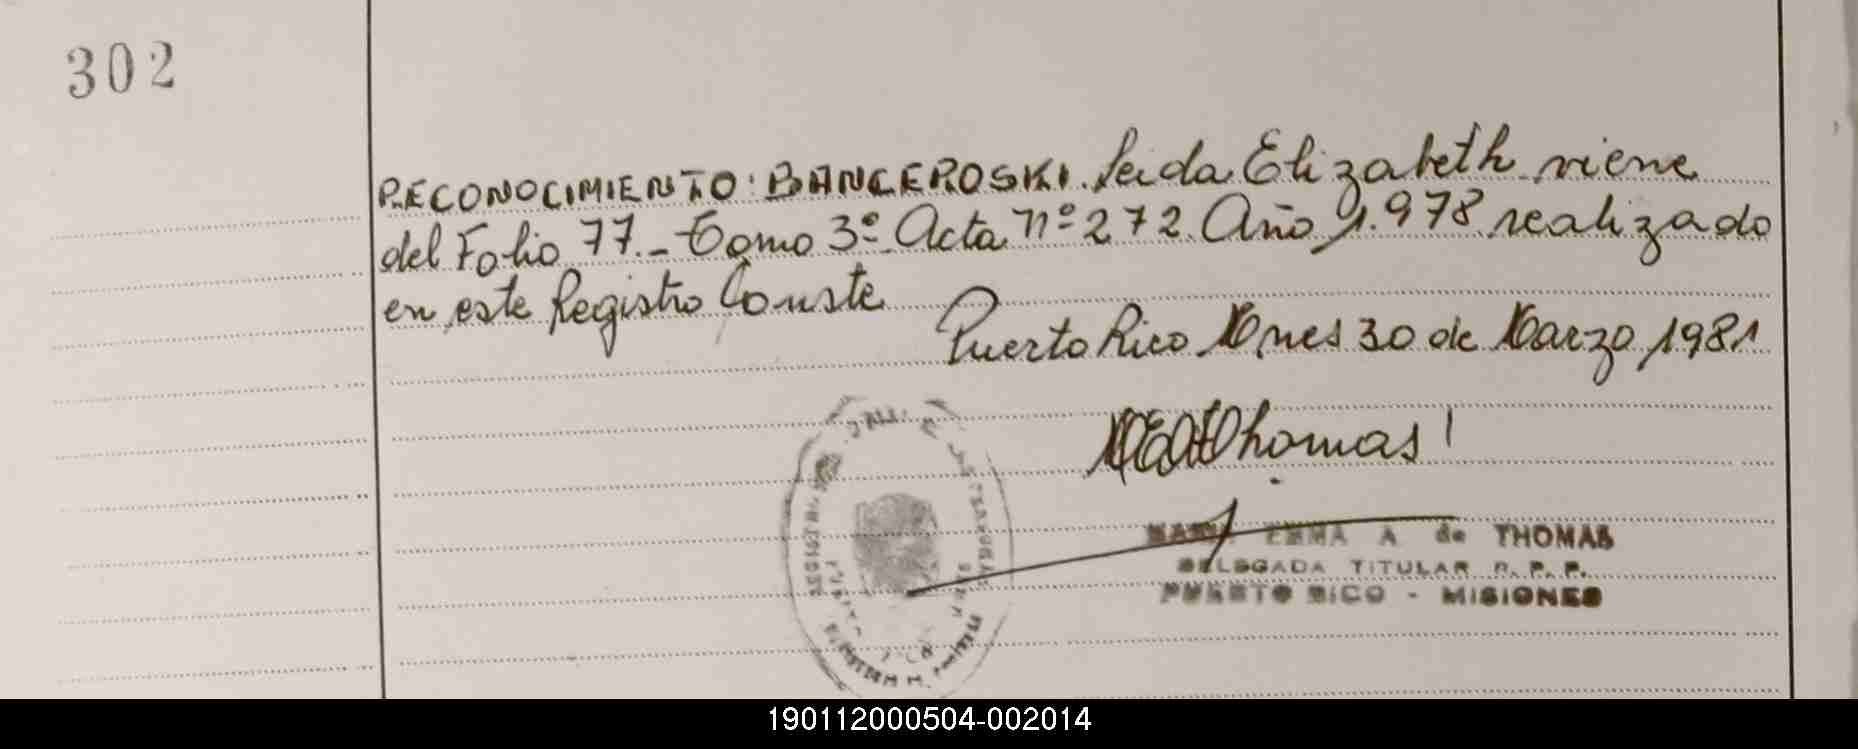 302
RECONOCIMIENTO: BANCEROSKI. Leida Elizabeth viene
del Folio 77.- Tomo 3º- Acta nº 272. Año 1.978 realizado
en este Registro Conste
Puerto Rico Lunes 30 de Marzo 1981
MEAdThomas
MARIA EMMA A de THOMAS
DELEGADA TITULAR R. P. P.
PUERTO RICO - MISIONES
190112000504-002014